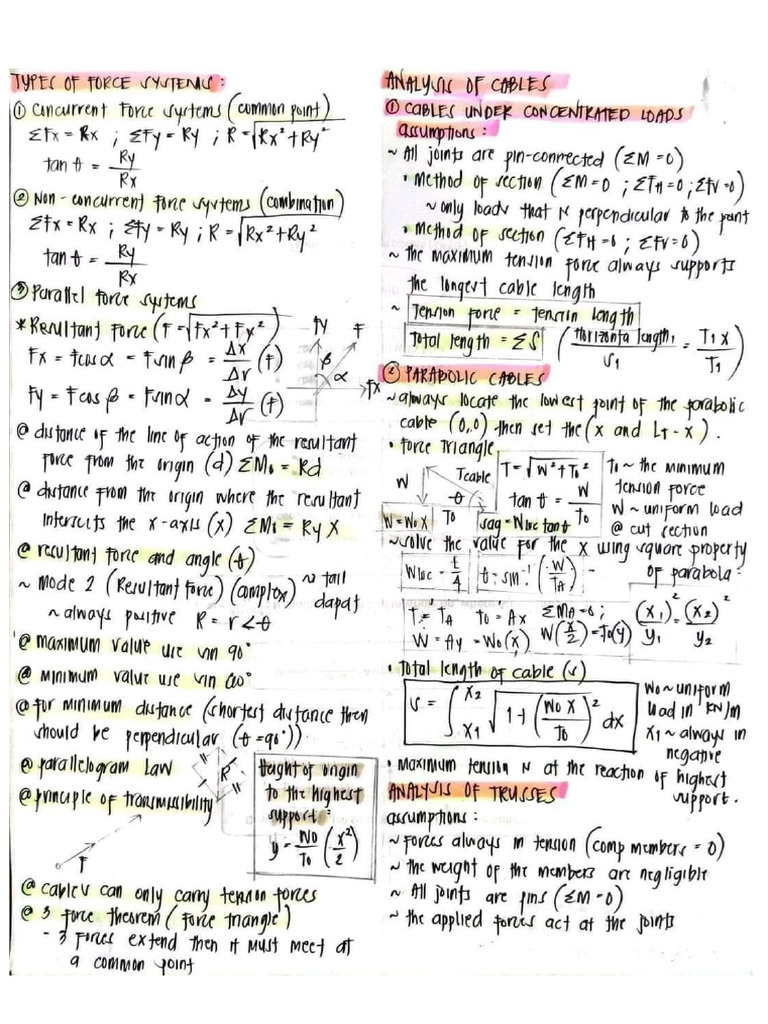 TYPES OF FORCE SYSTEMS:
① Concurrent Force Systems (common point)
ΣFx = Rx ; ΣFy = Ry ; R = √Rx² + Ry²
tan θ = Ry/Rx
② Non-concurrent force systems (combination)
ΣFx = Rx ; ΣFy = Ry ; R = √Rx² + Ry²
tan θ = Ry/Rx
③ Parallel force systems
* Resultant Force (F = √Fx² + Fx²)
Fx = Fcos α = Fsin β = Δx/Δr (F)
Fy = Fcos β = Fsin α = Δy/Δr (F)
Fy F
β
α
Fx
@ distance of the line of action of the resultant
force from the origin (d) ΣM₀ = Rd
@ distance from the origin where the resultant
intersects the x-axis (x) ΣM₀ = Ry X
@ resultant force and angle (θ)
~ mode 2 (Resultant force) (complex)
~ always positive R = r∠θ
@ maximum value use sin 90°
@ minimum value use sin
@ for minimum distance (shortest distance then
should be perpendicular (θ = 90°))
@ parallelogram law
R
@ principle of transmissibility
F
Height of origin
to the highest
support:
y = Wo/To (x²/2)
@ cables can only carry tension forces
@ 3 force theorem (force triangle)
- 3 forces extend then it must meet at
a common point
ANALYSIS OF CABLES
① CABLES UNDER CONCENTRATED LOADS
assumptions:
~ All joints are pin-connected (ΣM = 0)
• Method of section (ΣM = 0 ; ΣFH = 0 ; ΣFV = 0)
~ only loads that is perpendicular to the
• Method of section (ΣFH = 0 ; ΣFV = 0)
~ the maximum tension force always supports
the longest cable length
~ Tension force = tension length
Total length = ΣS (Horizontal length₁/S₁ = T₁x/T₁)
② PARABOLIC CABLES
~ always locate the lowest point of the parabolic
cable (0,0) then set the (x and LT - x).
• Force Triangle
W
Tcable
θ
To
W = Wo X
T = √W² + To²
tan θ = W/To
sag = Wloc tan θ
To ~ the minimum
tension force
W ~ uniform load
@ cut section
~ solve the value for the x using square property
of parabola:
Wloc = L/4
θ = sin⁻¹ (W/TA)
T = TA To = Ax
W = Ay = Wo(x)
ΣMA = 0;
W(x/2) = To(y)
(x₁)²/y₁ = (x₂)²/y₂
• Total length of cable (s)
s = ∫ x₁ x₂ √1 + (Wo X/To)² dx
Wo ~ uniform
load in kN/m
x₁ ~ always in
negative
• maximum tension is at the reaction of highest
support.
ANALYSIS OF TRUSSES
assumptions:
~ Forces always in tension (comp members = 0)
~ the weight of the members are negligible
~ All joints are pins (ΣM = 0)
~ the applied forces act at the joints